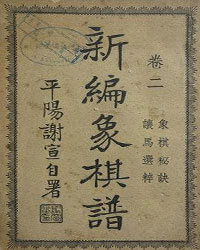 卷二
象棋秘訣
讓馬選粹
新編象棋譜
平陽謝宣自署